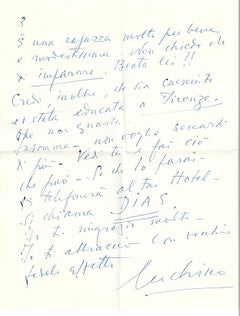 3
È una ragazza molto per bene
e modestissima. Non chiede che
di imparare. Beata lei!!
Credo, inoltre, che sia cresciuta
e stata educata a Firenze.
Che non guasta
Insomma - non voglio seccarti
di più - Vedi tu e fai ciò
che puoi - So che lo farai -
Ti telefonerà al tuo Hotel -
Si chiama DIAS.
Io ti ringrazio molto -
Io ti abbraccio con vecchio
fedele affetto
Luchino